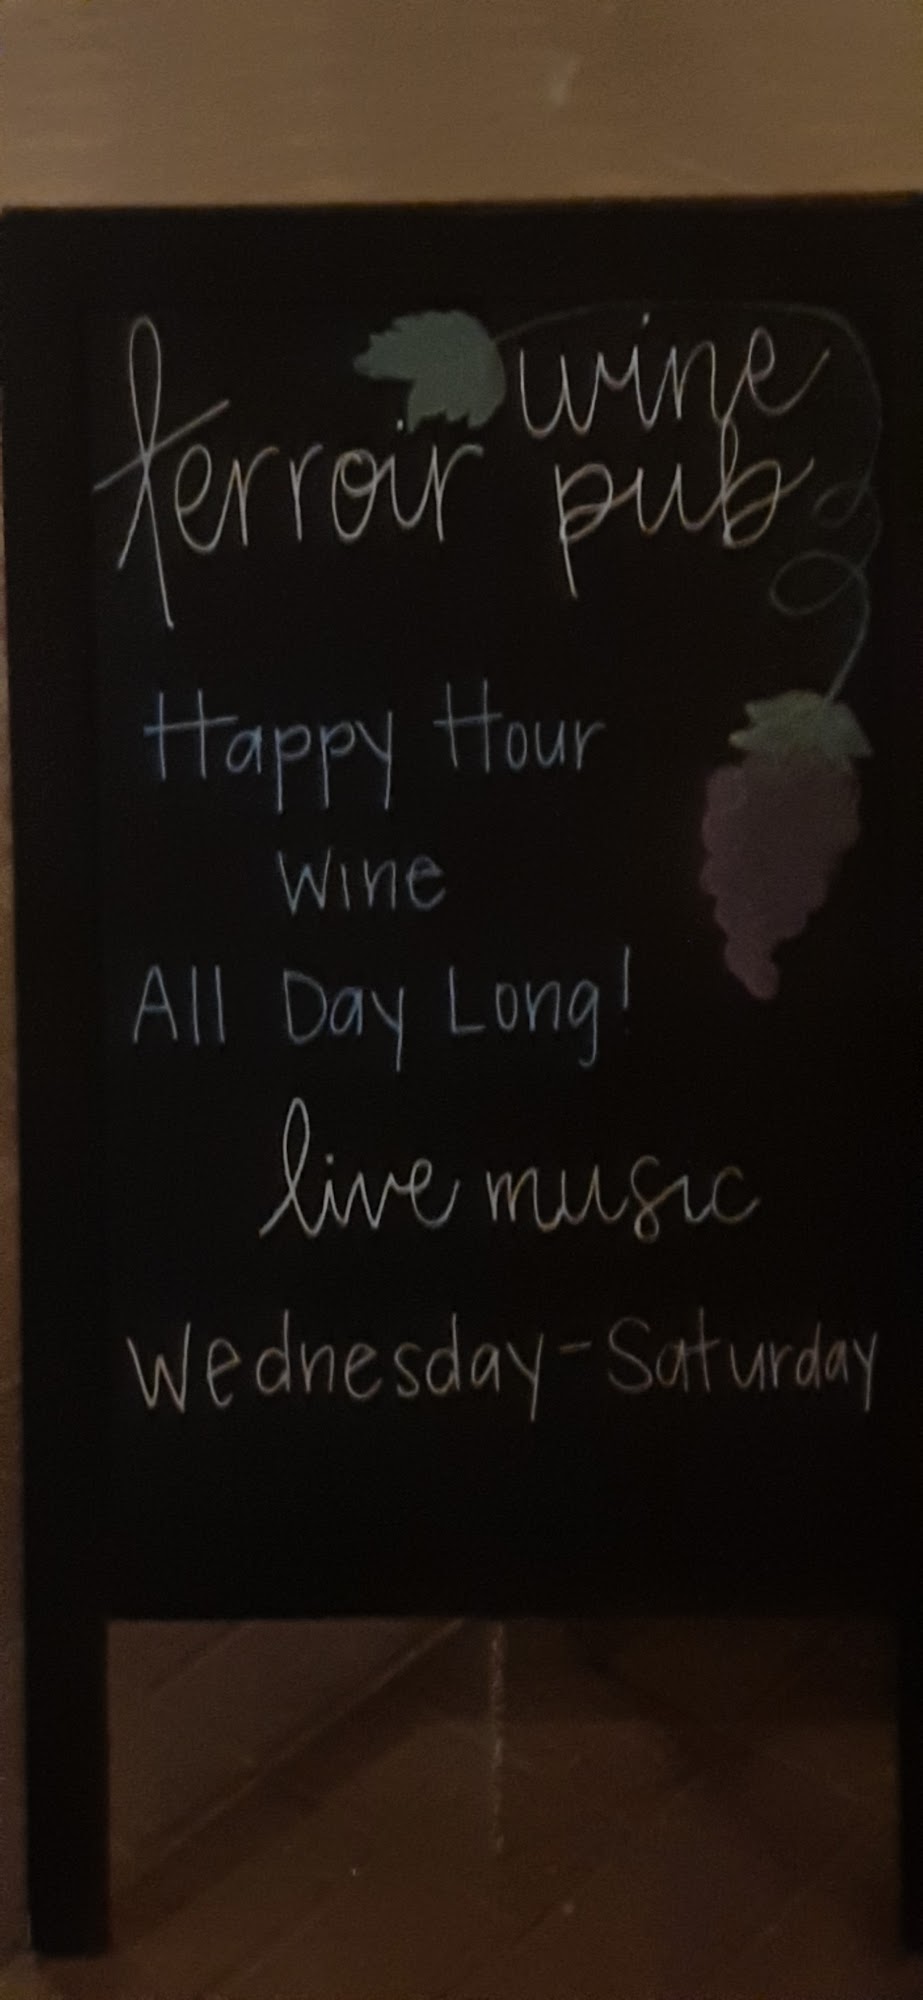 terroir wine
pub
Happy Hour
Wine
All Day Long!
live music
Wednesday-Saturday